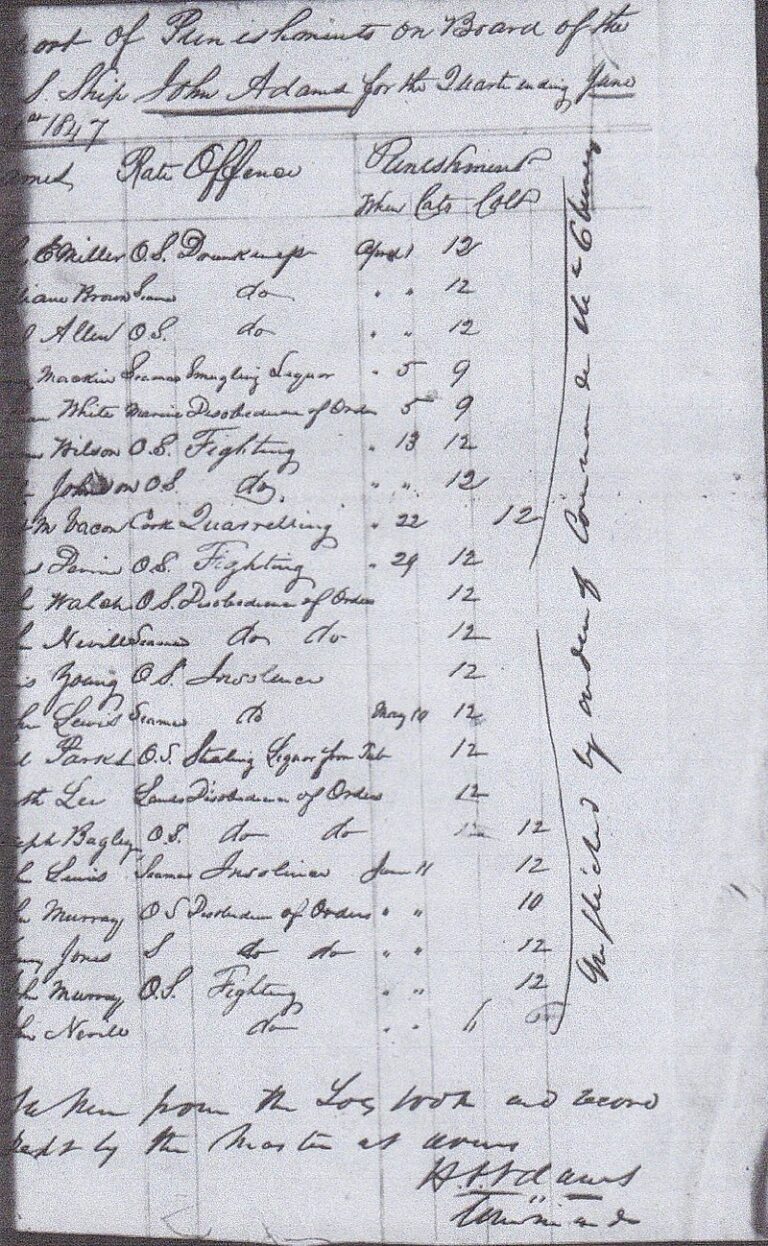 ort of Punishments on Board of the
S. Ship John Adams for the Quarter ending June
1847
ames Rate Offence Punishment
When Cats Colt
E Miller O.S. Drunkenness April 1 12
liam Brown Seama do " " 12
Allen O.S. do " " 12
Mackie Seaman Smugling Liquor " 5 9
White Marine Disobedience of Orders 5 9
Wilson O.S. Fighting " 13 12
Johnson O.S. do " " 12
m Bacon Cook Quarrelling " 22 12
O.S. Fighting " 29 12
Walsh O.S. Disobedience of Orders 12
Neville Seama do do 12
s Young O.S. Insolence 12
hn Lewis Seama do May 10 12
O.S. Stealing Liquor from Tub 12
th Lee Lands Disobedience of Orders 12
eph Bagley O.S. do do 12
Lewis Seaman Insolence June 11 12
Murray O S Disobedience of Orders " " 10
Jones S do do " " 12
hn Murray O.S. Fighting " " 12
hn Nevile do " "
Inflicted by order of Commander McCluney
Taken from the Log book and record
kept by the Master at arms
H A Adams
Commander